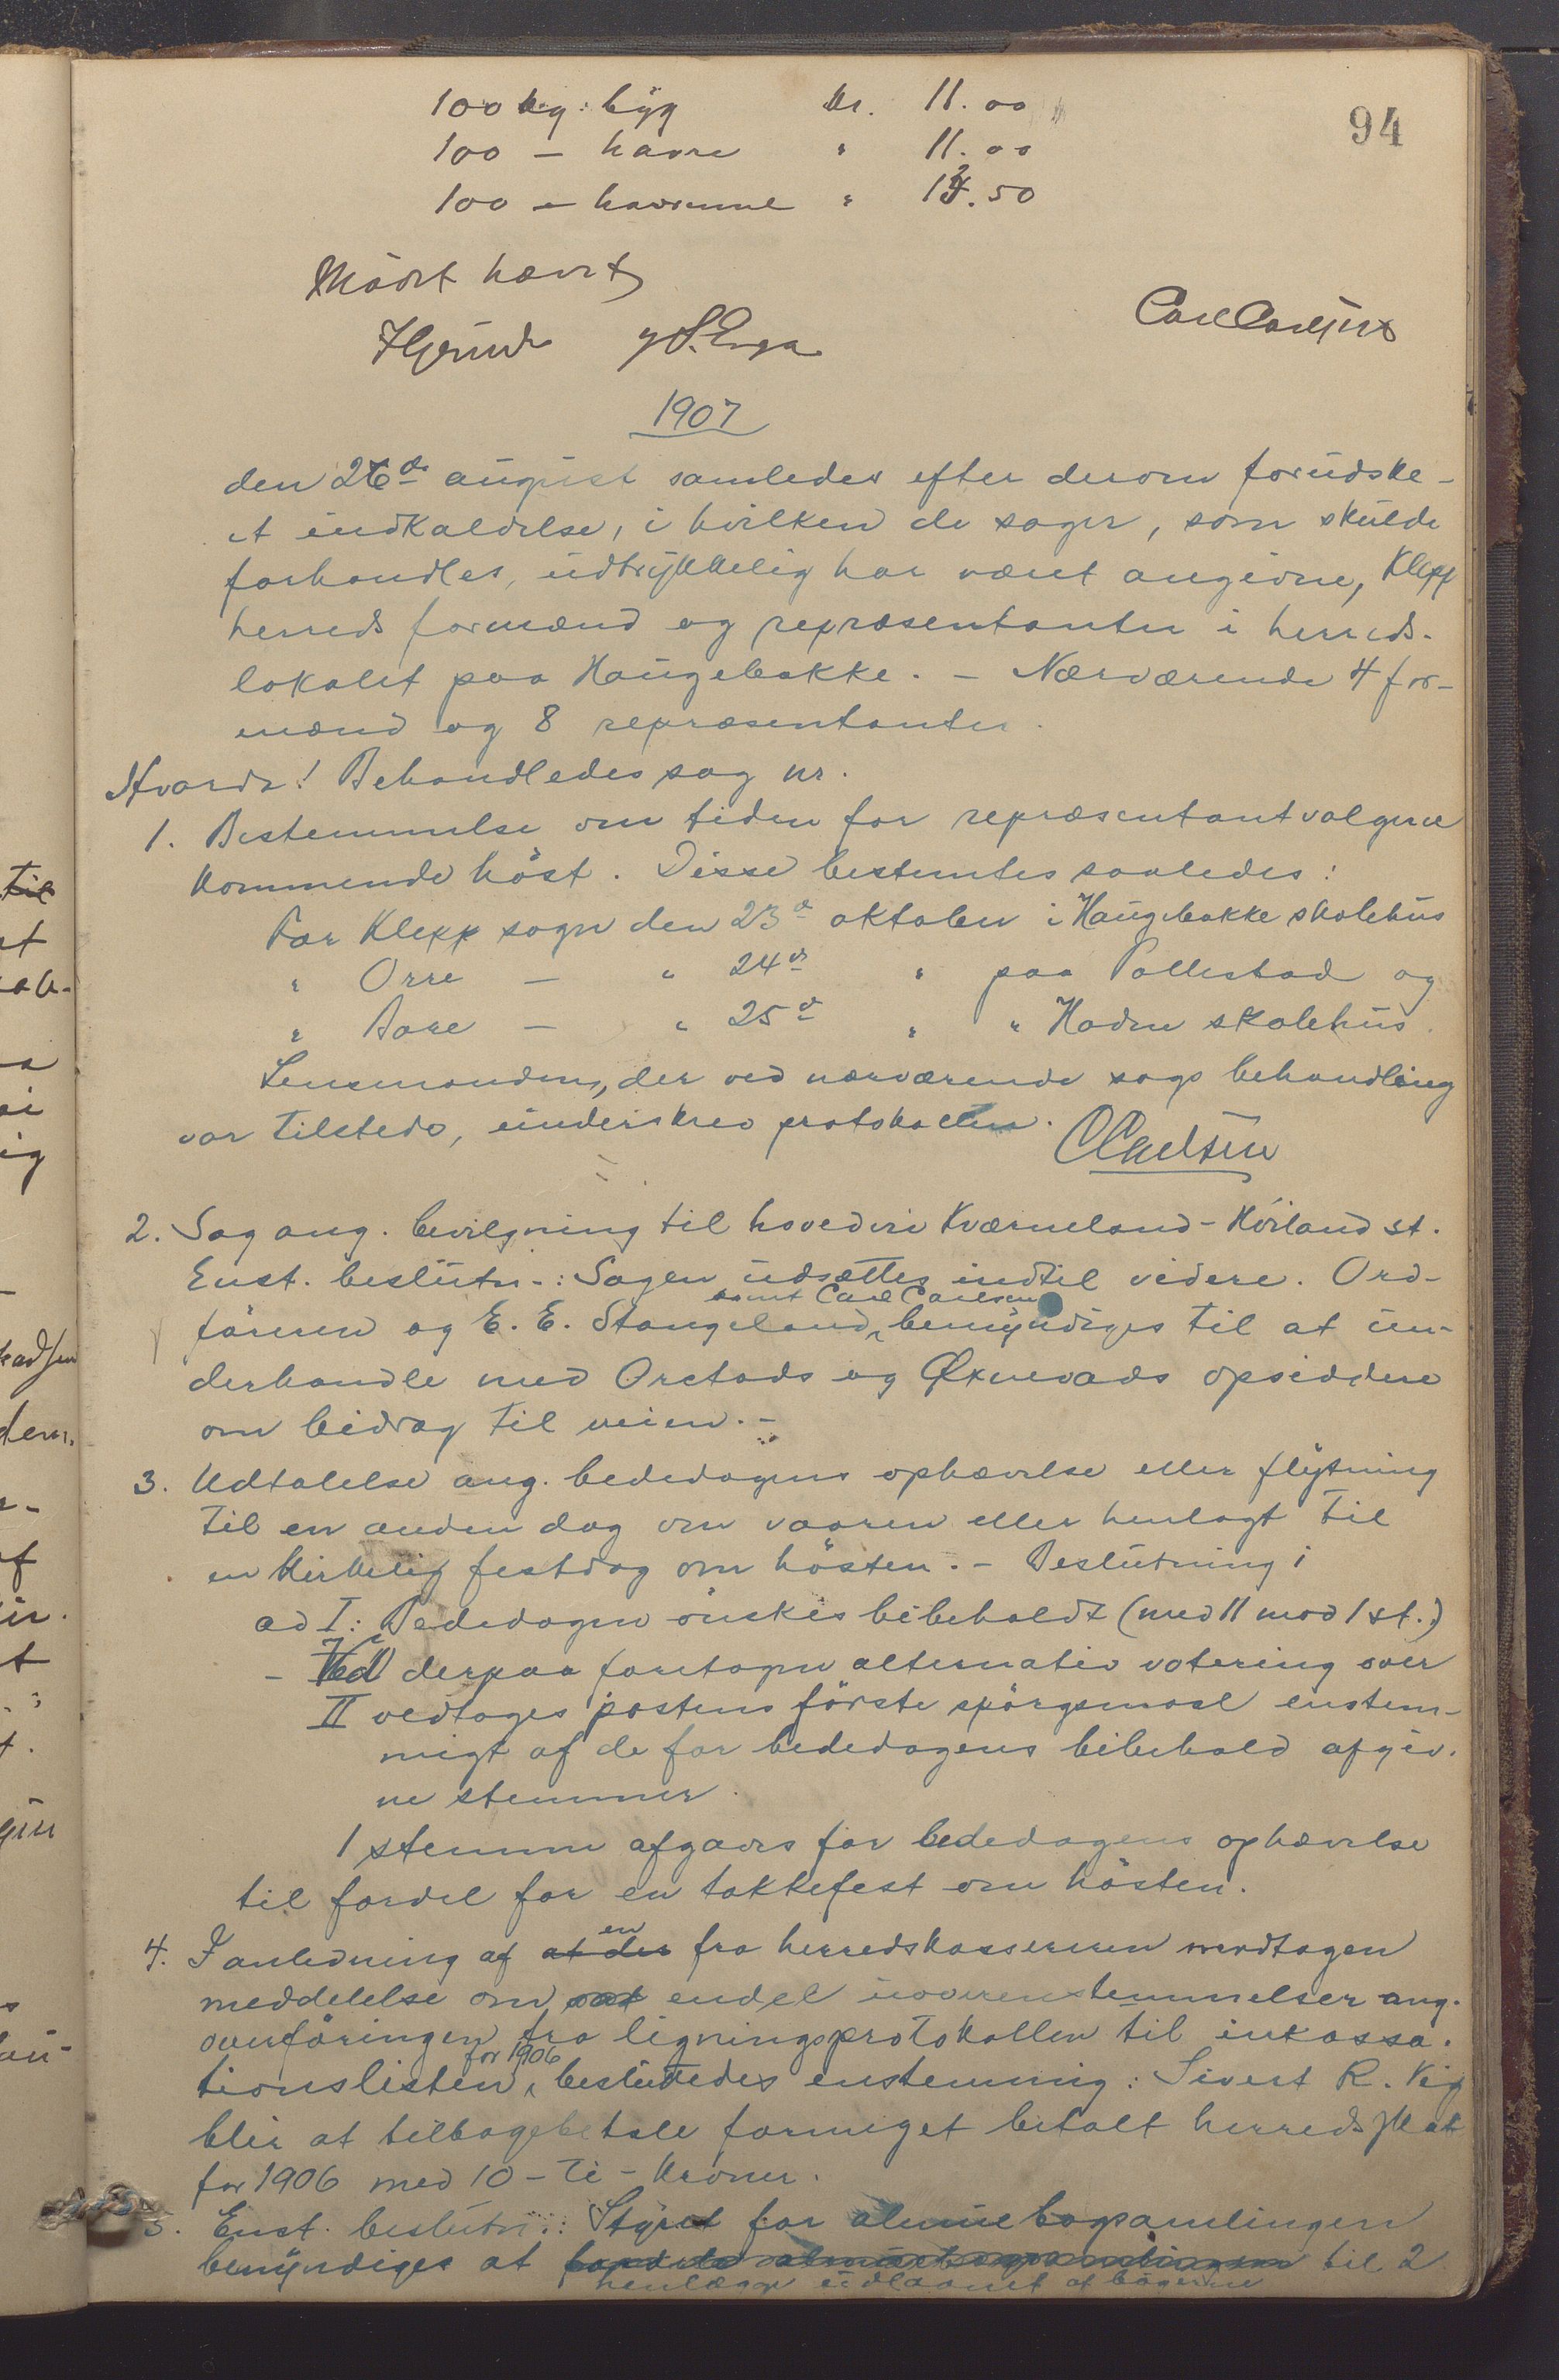 94
100 kg: byg kr. 11.00
100 – havre " 11.00
100 – havremel " 12.50
Mödet hævet
Carl Carlsen
1907
den 26de august samledes efter derom forudske-
et indkaldelse, i hvilken de sager, som skulde
forhandles, udtrykkelig har været angivne, Klepp
herreds formænd og repræsentanter i herreds-
lokalet paa Haugebakke. – Nærværende 4 for-
mænd og 8 repræsentanter.
Hvorda! Behandledes sag nr.
1. Bestemmelse om tiden for repræsentantvalgene
kommende höst. Disse bestemtes saaledes:
For Klepp sogn den 23de oktober i Haugebakke skolehus
" Orre – " 24de " paa Pollestad og
" Bore – " 25de " " Hodne skolehus.
Lensmanden, der ved nærværende sags behandling
var tilstede, underskrev protokollen.
CCarlsen
2. Sag ang. bevilgning til hovedvei Kværneland-Köiland st.
Enst. beslutn.: Sagen udsættes indtil videre. Ord-
samt Carl Carlsen
föreren og E. E. Stangeland, bemyndiges til at un-
derhandle med Orstads og Øxnevads opsiddere
om bidrag til veien. –
3. Udtalelse ang. bededagens ophævelse eller flytning
til en anden dag om vaaren eller henlagt til
en kirkelig festdag om hösten. – Beslutning:
ad I: Bededagen önskes bibeholdt (med 11 mod 1 st.)
– Ved derpaa foretagen alternativ votering over
II vedtages postens förste spörgsmaal enstem-
migt af de for bededagens bibehold afgiv-
ne stemmer.
1 stemme afgaves for bededagens ophævelse
til fordel for en takkefest om hösten.
en
4. I anledning af at der fra herredskassereren modtagen
meddelelse om endel uoverenstemmelser ang.
overföringen fra ligningsprotokollen til inkassa-
for 1906
tionslisten, besluttedes enstemmig: Sivert R. Vig
blir at tilbagebetale formeget betalt herredsskat
for 1906 med 10 – ti – kroner.
5. Enst. beslutn.: Styret for almuebogsamlingen
bemyndiges at til 2
henlægge udlaanet af bögerne